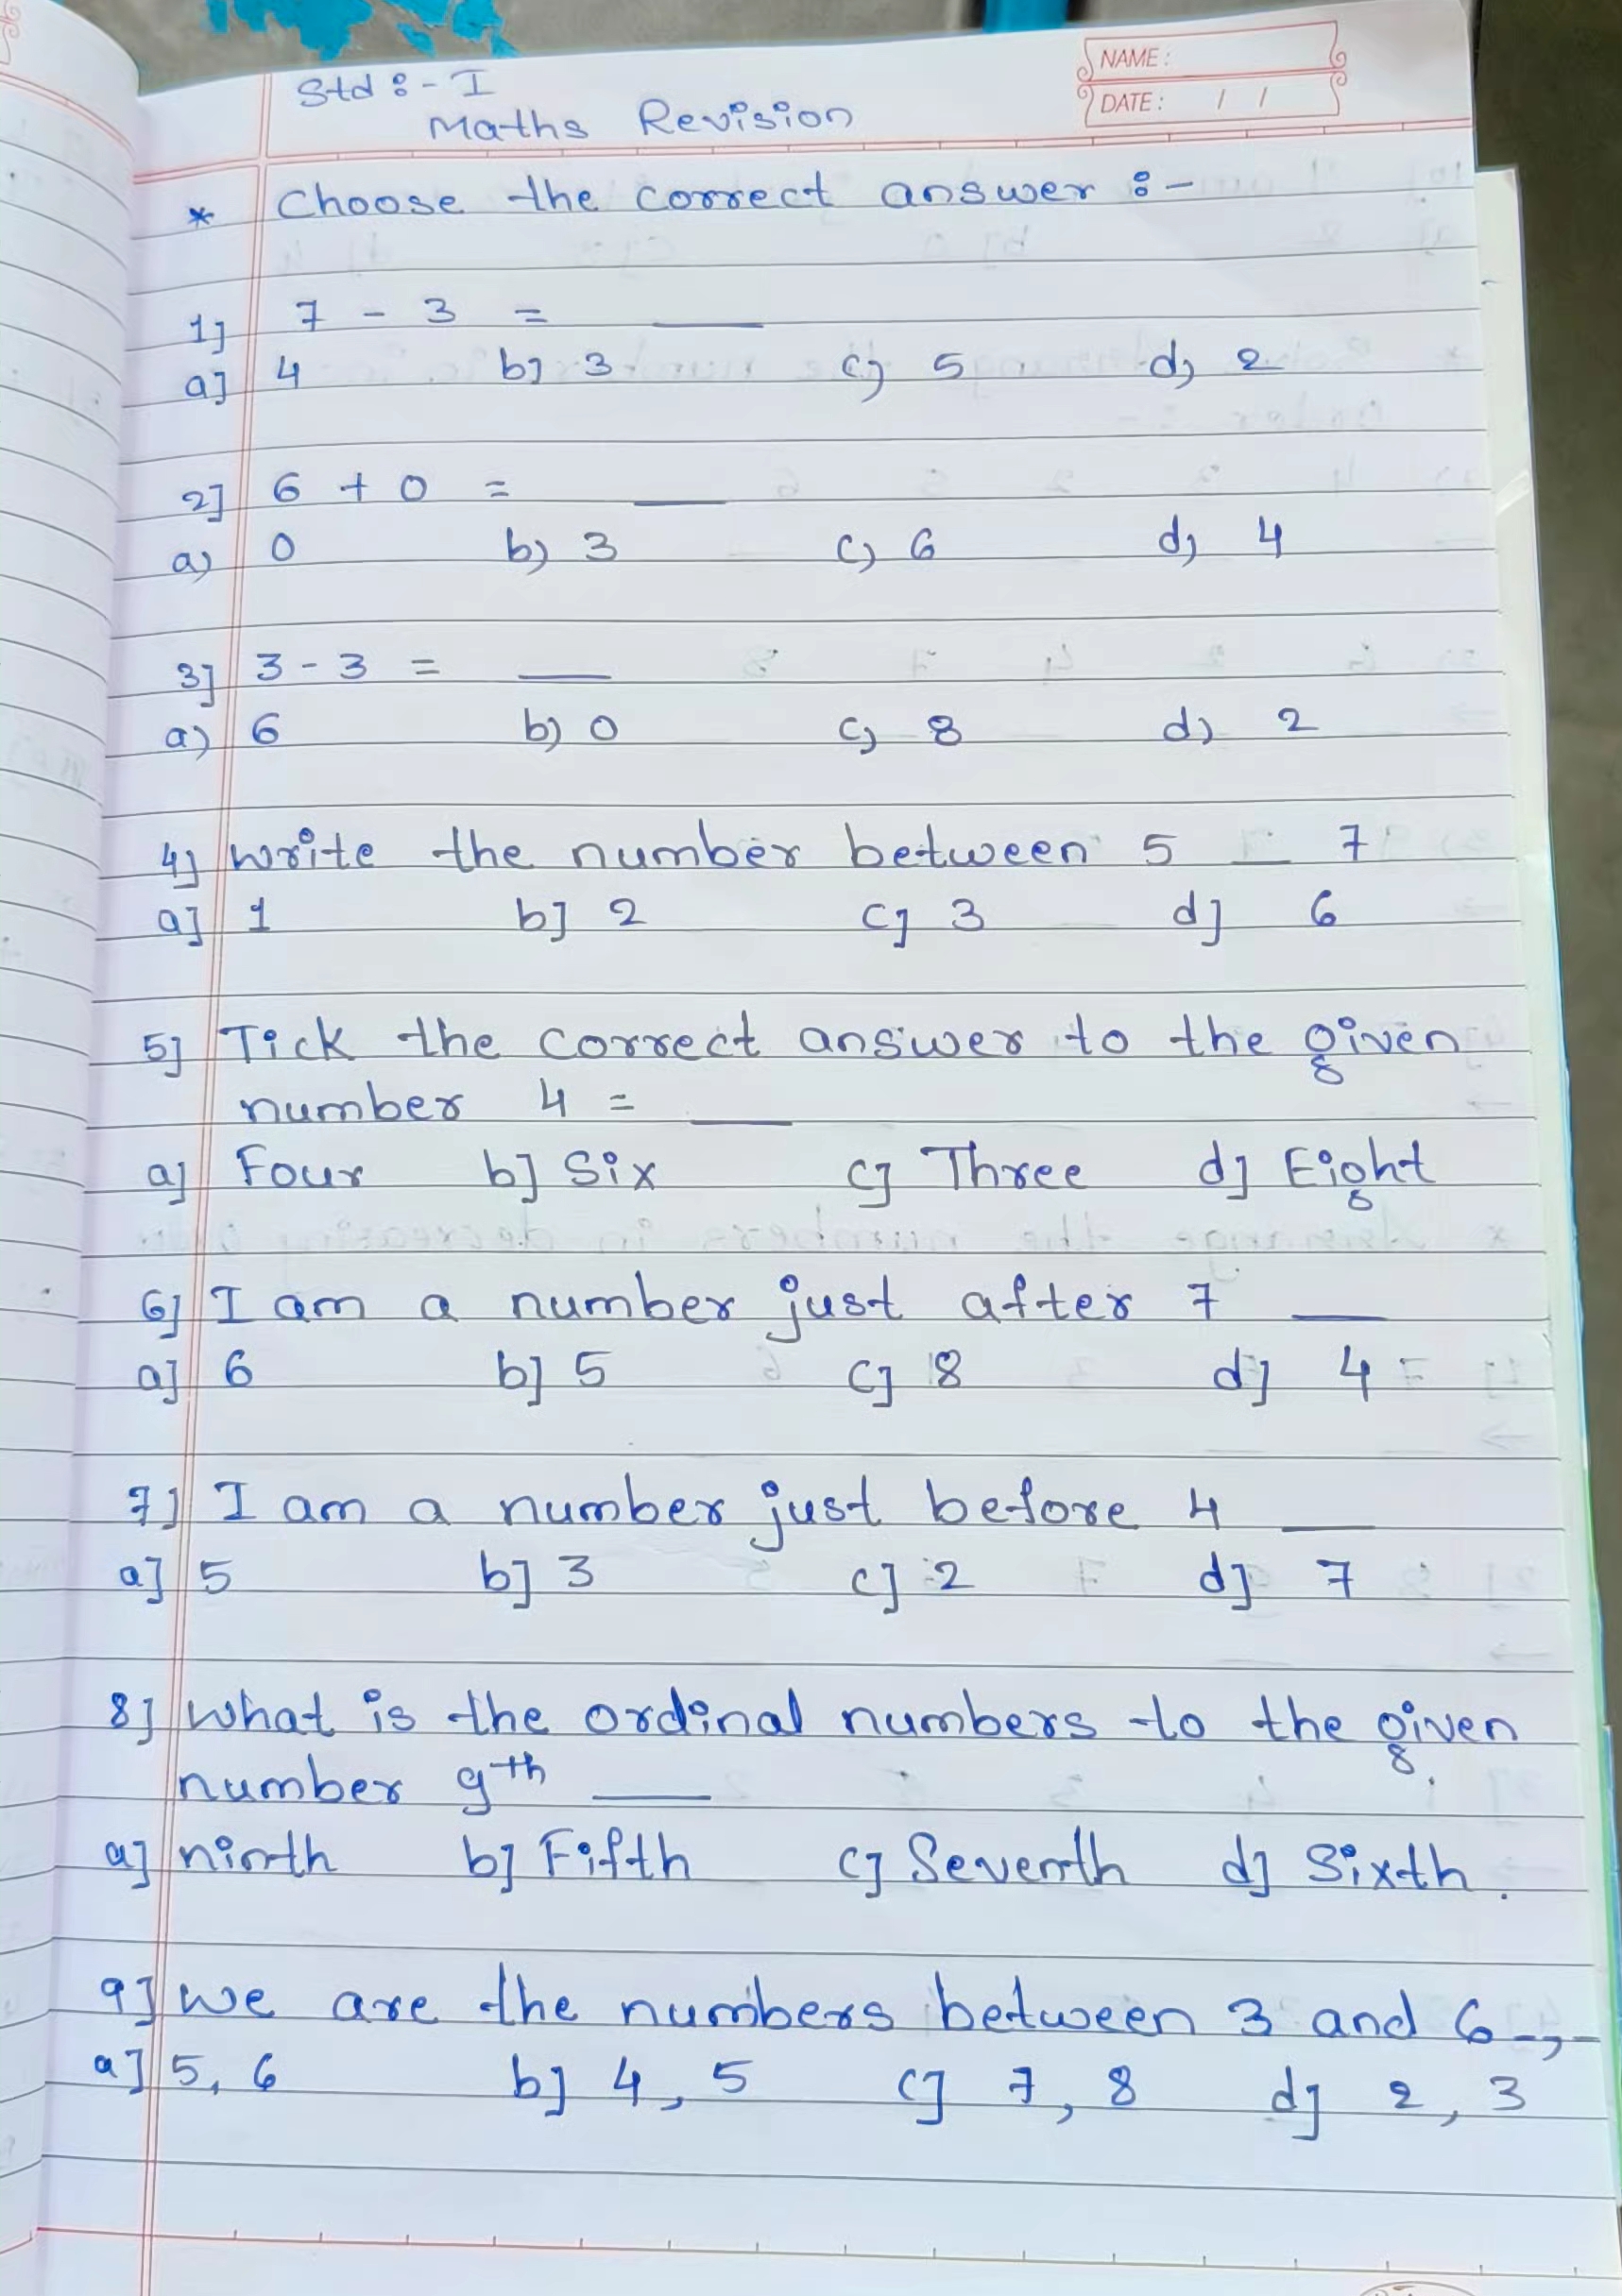 NAME :
DATE : / /
Std :- I
Maths Revision
* Choose the correct answer :-
1] 7 - 3 = __
a] 4 b] 3 c) 5 d) 2
2] 6 + 0 = __
a) 0 b) 3 c) 6 d) 4
3] 3 - 3 = __
a) 6 b) 0 c) 8 d) 2
4] write the number between 5 __ 7
a] 1 b] 2 c] 3 d] 6
5] Tick the correct answer to the given
number 4 = __
a] Four b] Six c] Three d] Eight
6] I am a number just after 7 __
a] 6 b] 5 c] 8 d] 4
7] I am a number just before 4 __
a] 5 b] 3 c] 2 d] 7
8] what is the ordinal numbers to the given
number 9th __
a] ninth b] Fifth c] Seventh d] Sixth.
9] we are the numbers between 3 and 6 _,_
a] 5, 6 b] 4, 5 c] 7, 8 d] 2, 3